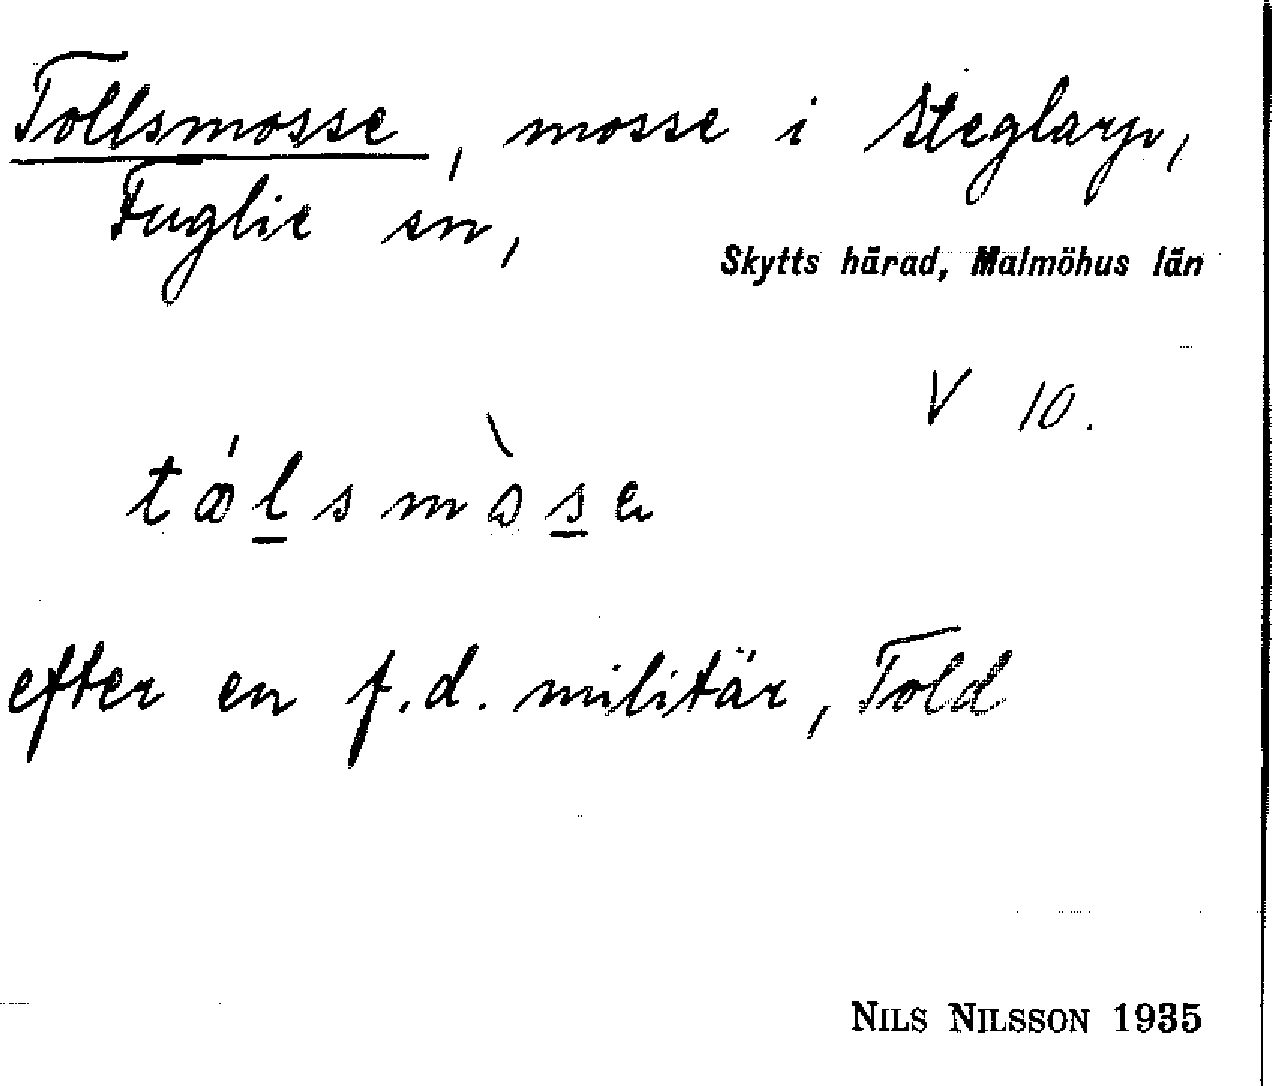 Tollsmosse, mosse i Steglarp,
Fuglie sn,
Skytts härad, Malmöhus län
V 10.
efter en f.d. militär, Told
NILS NILSSON 1935